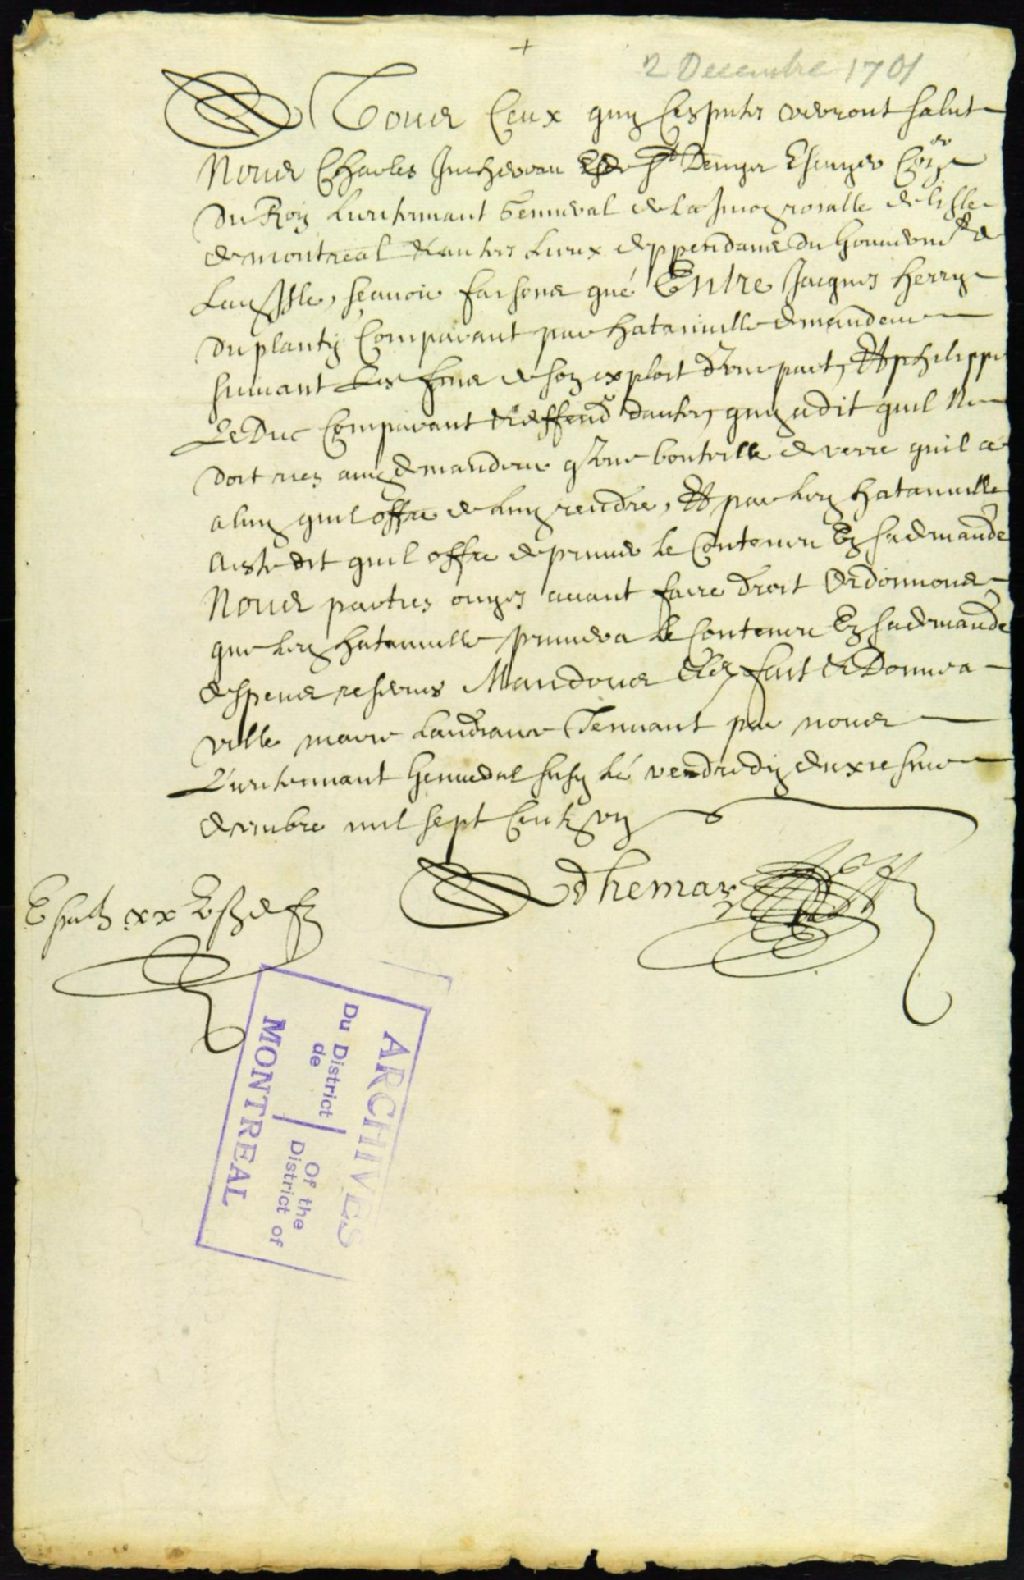 +
2 Decembre 1701
A Tous Ceux quy Ces pntes verront salut
Nous Charles Juchereau Esr Sr Denys Escuyer Coner
Du Roy Lieutenant General de La Jur royalle de lisle
de montreal & autres Lieux deppendans du Gouvernt de
La ville, scavoir faisons qué Entre Jacques herry
Duplanty Comparant par hatanville demandeur
suivant Les fins de son exploit dune part, Et philippe
LeDuc Comparant & deffend dautre, quy a dit quil Ne
doit rien au demandeur qune bouteille de verre quil a
a luy quil offre de luy rendre, Et par Led hatanville
a este dit quil offre de prouver le Contenu En sa demande
Nous parties ouyes avant faire droit Ordonnons
que Led hatanville prouvera le Contenu En sa demande
despens reserves Mandons &c fait & Donné a
ville marie Laudiance Tenant par nous
Lieutenant General susd Lé vendredy deuxiesme
decembre mil sept Cent un
Adhemar
greff
ARCHIVES
Du District de
Of the District of
MONTREAL